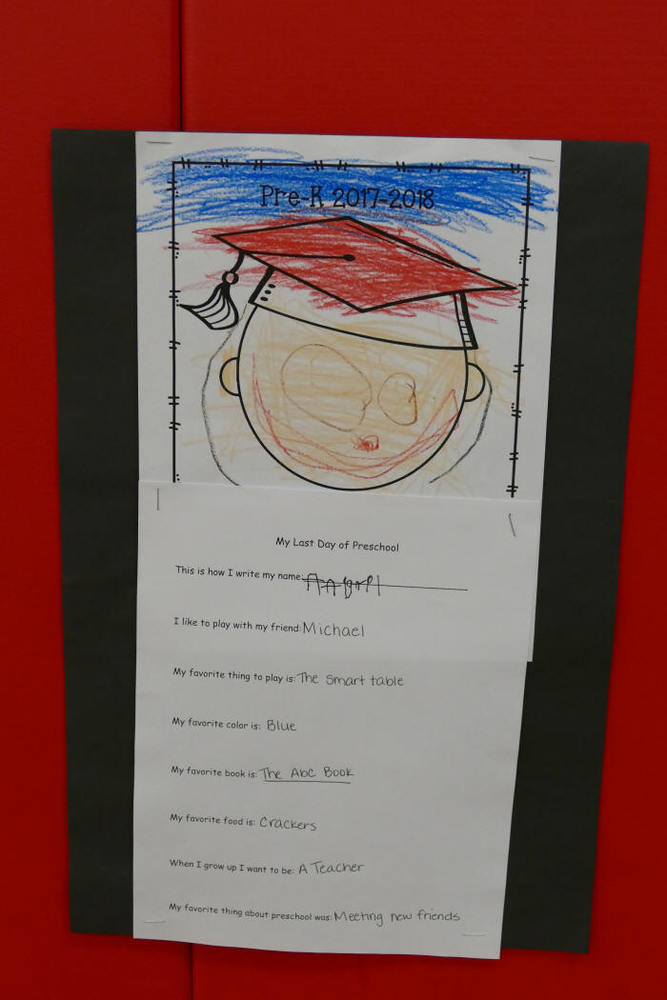 Pre-K 2017-2018
My Last Day of Preschool
This is how I write my name: Angel
I like to play with my friend: Michael
My favorite thing to play is: The smart table
My favorite color is: Blue
My favorite book is: The Abc Book
My favorite food is: Crackers
When I grow up I want to be: A Teacher
My favorite thing about preschool was: Meeting new friends